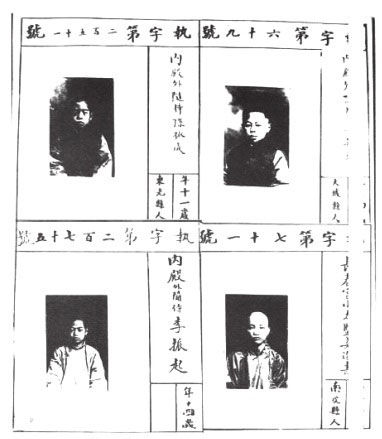 字第六十九號
內殿外
大城縣人
執字第二百五十一號
內殿外隨侍孫
年十一歲
東光縣人
字第七十一號
長春宮
南皮縣人
執字第二百七十五號
內殿外隨侍李振起
年十四歲